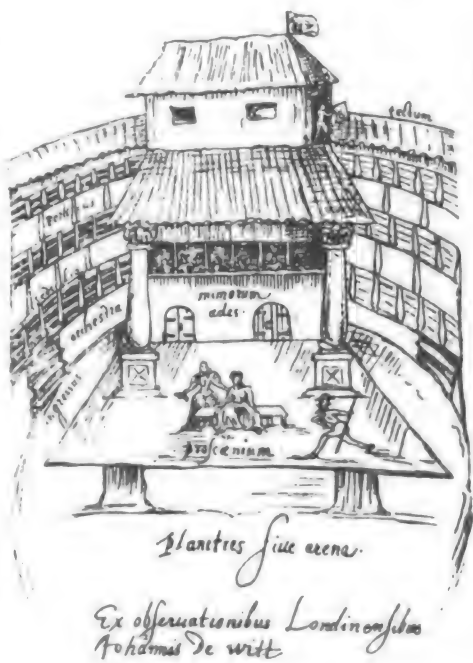 tectum
porticus
mimorum
ædes.
orchestra
ingressus
proscænium
planities siue arena.
Ex obseruationibus Londinensibus
Johannis De witt